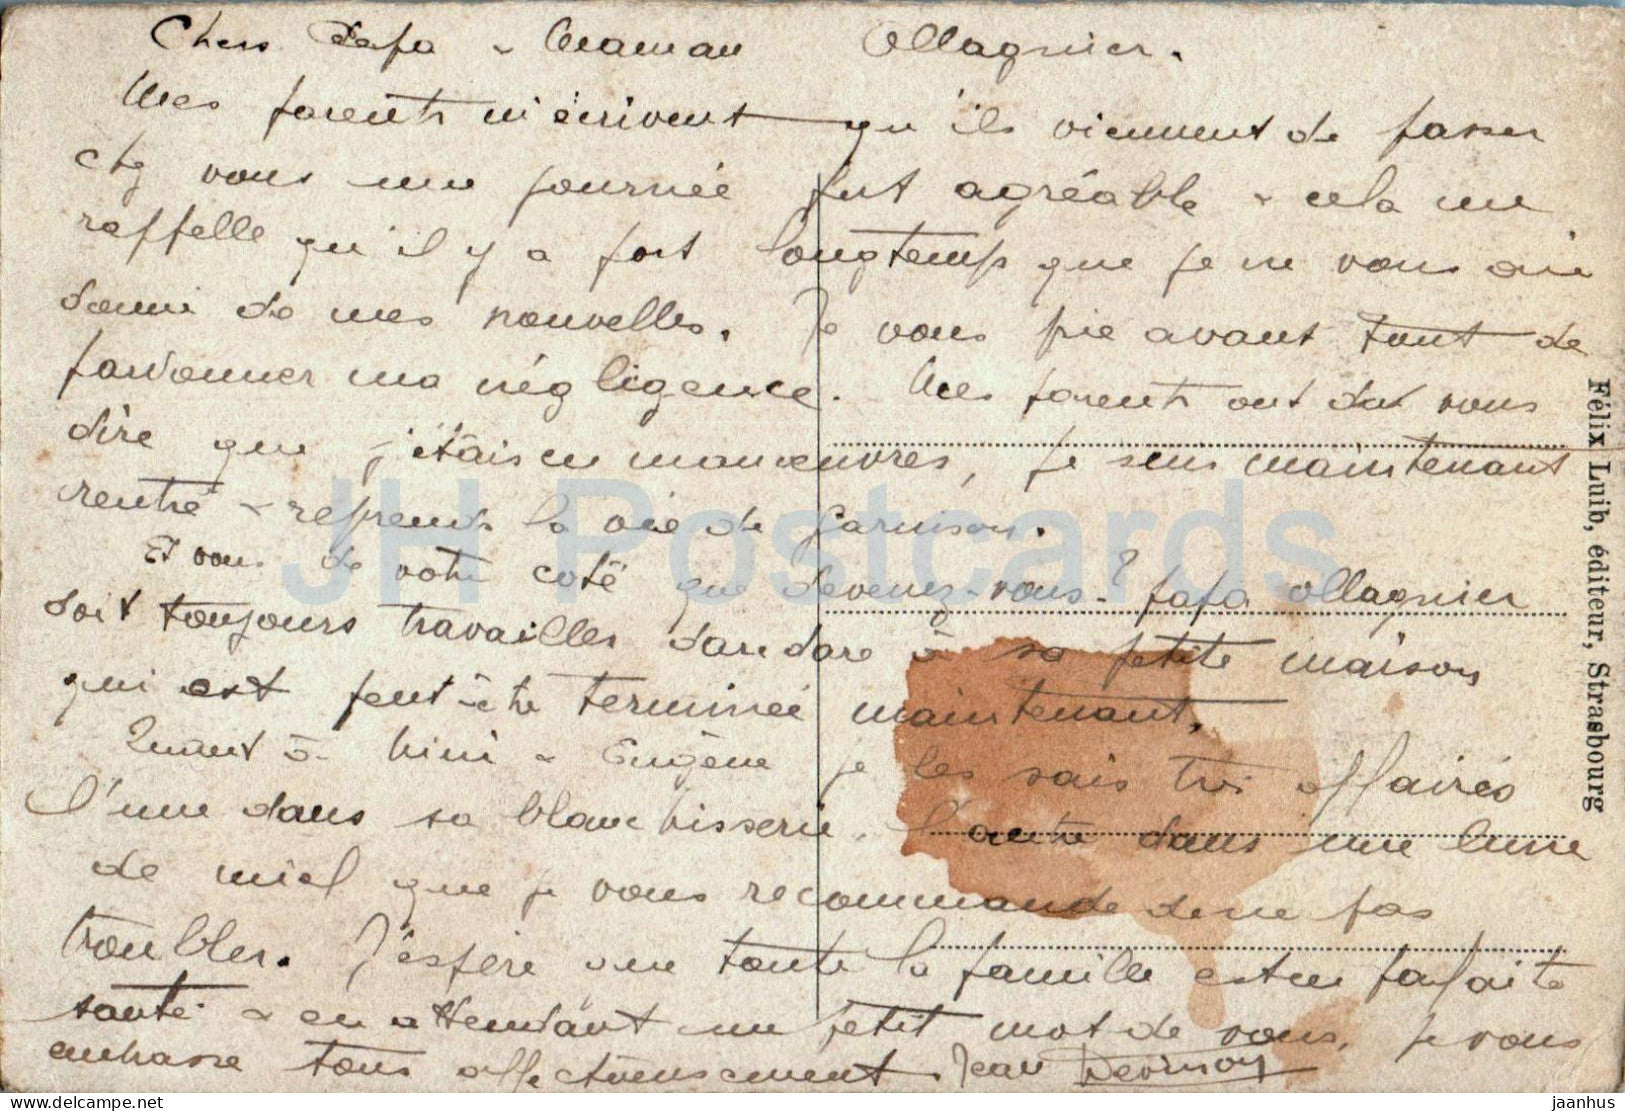 Chers Papa & Maman Ollagnier.
Mes parents m'écrivent qu'ils viennent de passer
chez vous une journée fort agréable & cela me
rappelle qu'il y a fort longtemps que je ne vous aie
donné de mes nouvelles. Je vous prie avant tout de
pardonner ma négligence. Mes parents ont dut vous
dire que j'étais en manœuvres, je suis maintenant
rentré & reprends la vie de garnison.
Et vous de votre coté que devenez-vous-? Papa Ollagnier
doit toujours travailler dare dare à sa petite maison
qui est peut-être terminée maintenant.
Quant à Mimi & Eugène je les sais très affairés
l'une dans sa blanchisserie, l'autre dans une lune
de miel que je vous recommande de ne pas
troubler. J'espère que toute la famille est en parfaite
santé & en attendant un petit mot de vous, je vous
embrasse tous affectueusement. Jean
Félix Luib, éditeur, Strasbourg
JH Postcards
jaanhus
delcampe.net